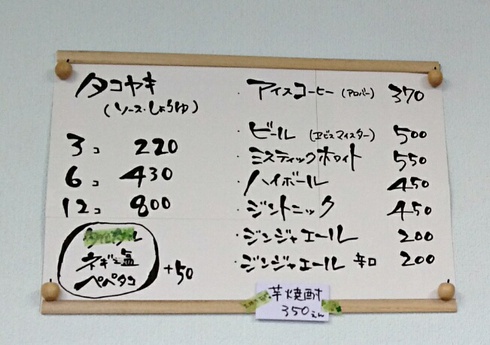 タコヤキ
(ソース・しょうゆ)
3コ 220
6コ 430
12コ 800
ネギ塩
ペペタコ
+50
・アイスコーヒー (アロバー) 370
・ビール (エビスマイスター) 500
・ミスティックホワイト 550
・ハイボール 450
・ジントニック 450
・ジンジャエール 200
・ジンジャエール 辛口 200
芋焼酎
350えん